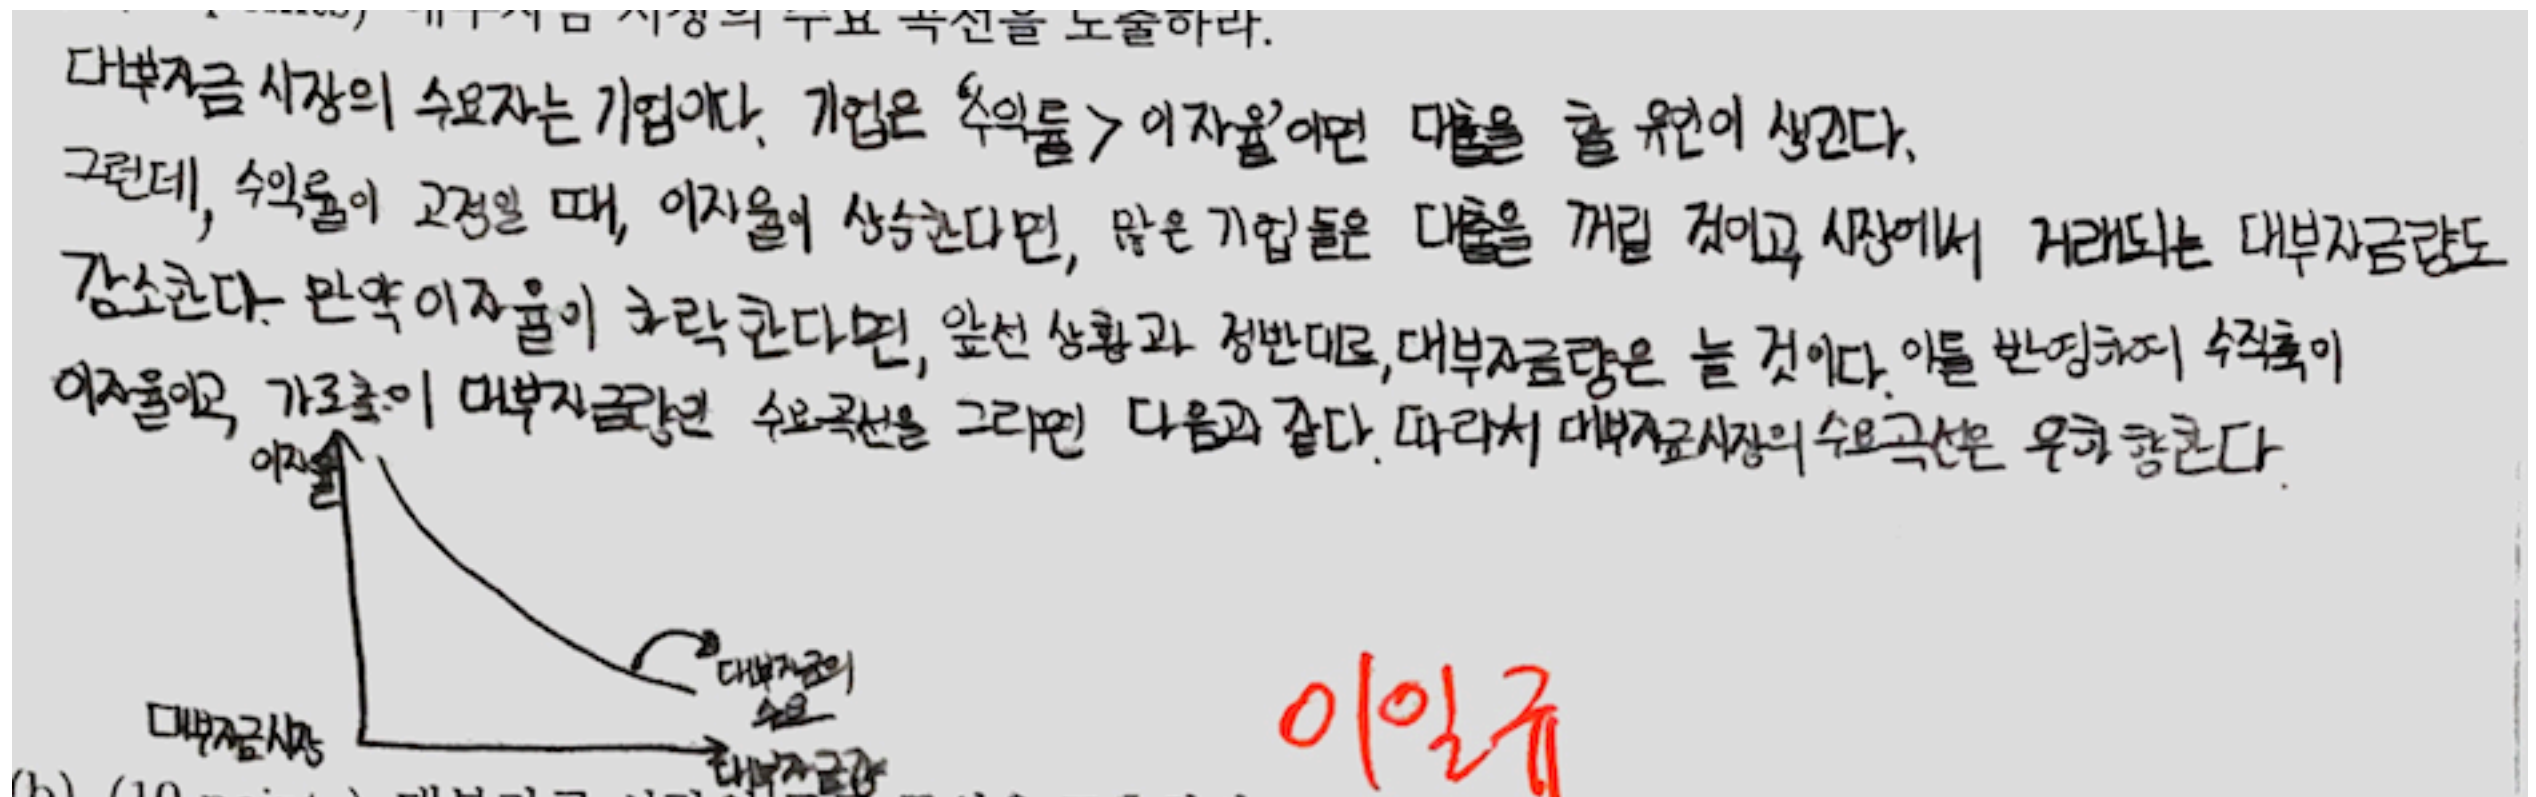 대부자금 시장의 수요 곡선을 도출하라.
대부자금 시장의 수요자는 기업이다. 기업은 '수익률 > 이자율'이면 대출을 할 유인이 생긴다.
그런데, 수익률이 고정일 때, 이자율이 상승한다면, 많은 기업들은 대출을 꺼릴 것이고, 시장에서 거래되는 대부자금량도
감소한다. 만약 이자율이 하락한다면, 앞선 상황과 정반대로, 대부자금량은 늘 것이다. 이를 반영하여 수직축이
이자율이고 가로축이 대부자금량인 수요곡선을 그리면 다음과 같다. 따라서 대부자금시장의 수요곡선은 우하향한다.
이자율
대부자금의
수요
대부자금시장
대부자금량
이일규
(b) (10